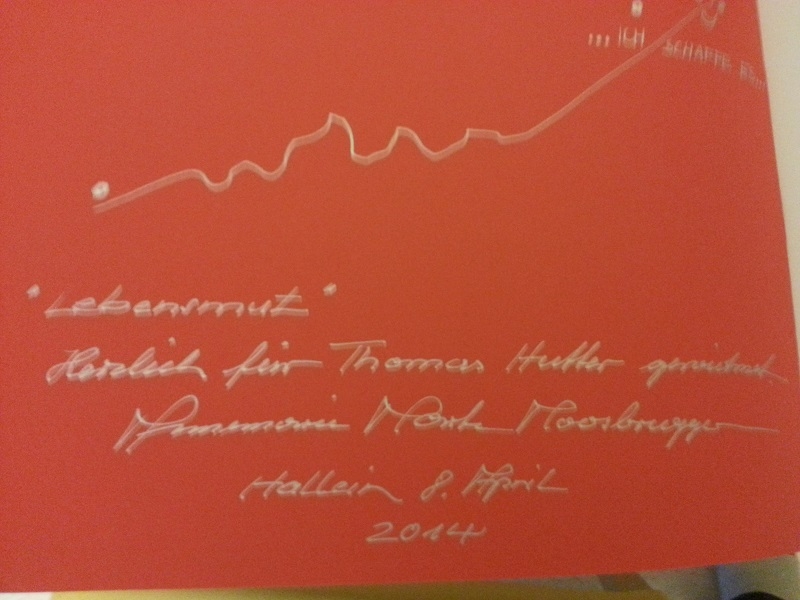 ... ICH SCHAFFE
"Lebensmut"
Herzlich für Thomas Hutter gewidmet
Annemarie Mark Moosbrugger
Hallein 8. April
2014